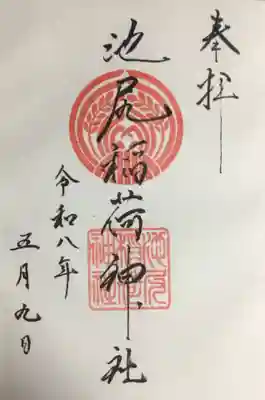 奉拝
池尻稲荷神社
令和八年
五月九日
池尻稲荷神社